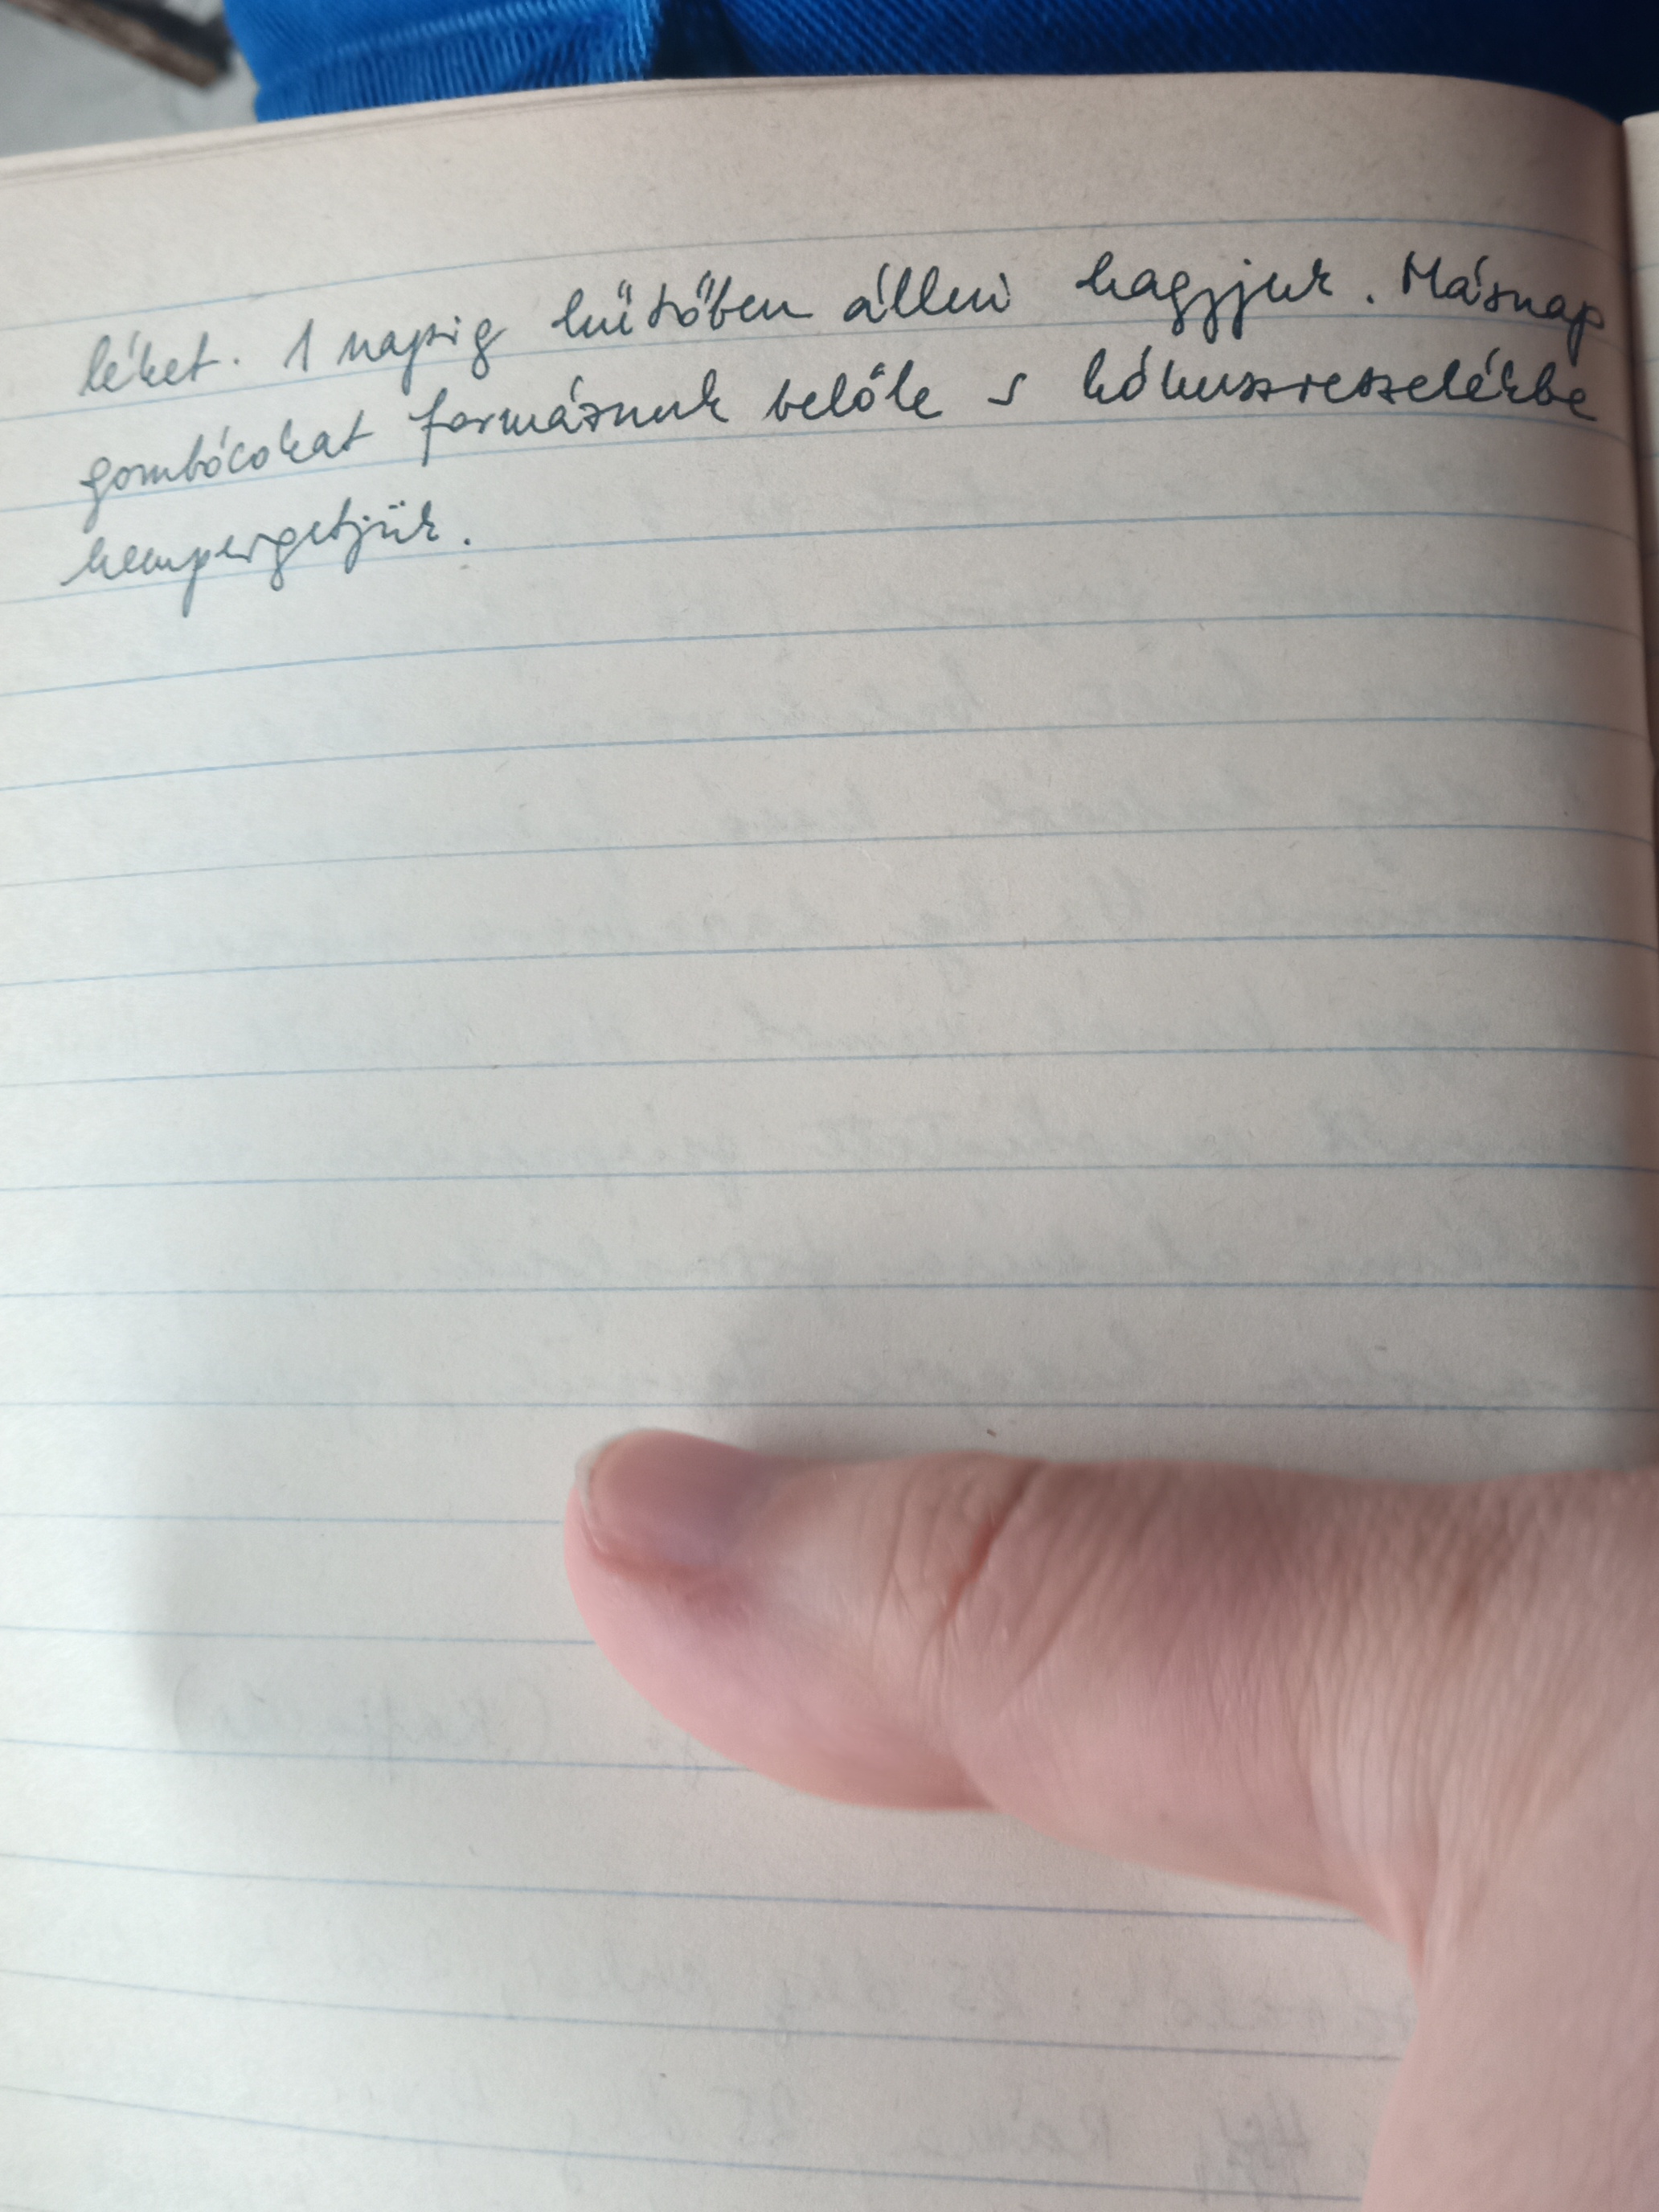 léket. 1 napig hűtőben állni hagyjuk. Másnap
gombócokat formásnuk belőle s kókuszreszelékbe
hempergetjük.